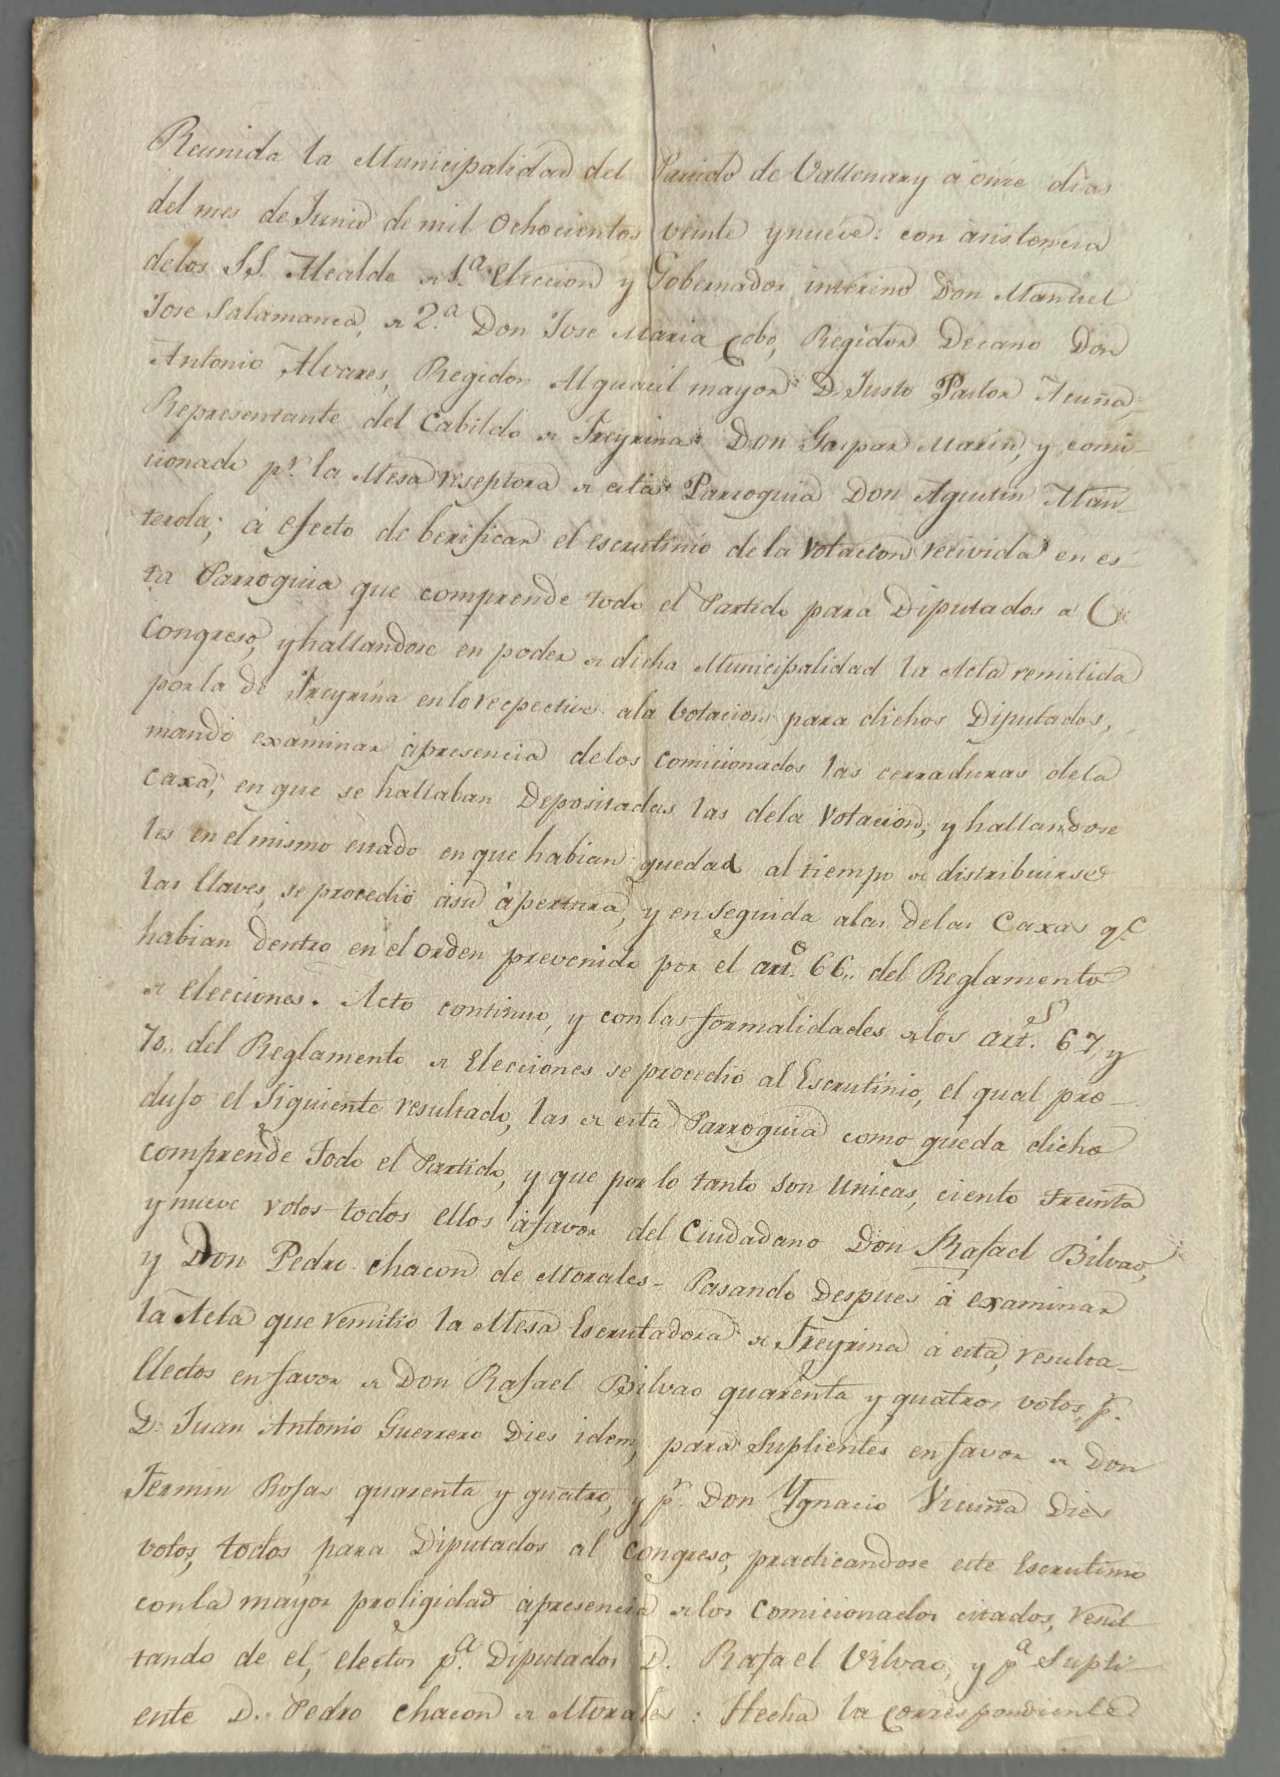 Reunida la Municipalidad del Partido de Vallenary á onze dias
del mes de Junio de mil ochocientos veinte y nueve: con asistencia
delos SS. Alcalde de 1.ª Eleccion y Gobernador interino Don Manuel
Jose Salamanca, de 2.ª Don Jose Maria Cobo, Regidor Decano Don
Antonio Alvares, Regidor Alguacil mayor D. Justo Pastor Acuña,
Representante del Cabildo de Freyrina Don Gaspar Marin, y comi-
cionado pr. la Mesa reseptora de esta Parroquia Don Agustin Man
terola; á efecto de berificar el escrutinio de la votacion recivida en es-
ta Parroquia que comprende todo el Partido para Diputados a
Congreso, y hallandose en poder de dicha Municipalidad la Acta remitida
por la de Freyrina en lo respectivo ala Votacion para dichos Diputados,
mandó examinar ápresencia delos comicionados las cerraduras dela
caxa, en que se hallaban Depositadas las dela Votacion; y hallandose
les en el mismo estado en que habian quedad al tiempo de distribuirse
las llaves, se procedió ásu ápertura, y en seguida alas delas Caxas q.e
habian dentro en el orden prevenido por el art.o 66.. del Reglamento
de elecciones. Acto continuo, y con las formalidades delos art.s 67, y
70.. del Reglamento de Elecciones se procedió al Escrutinio, el qual pro-
dujo el Siguiente resultado, las de esta Parroquia como queda dicho
comprende Todo el Partido, y que por lo tanto son unicas, ciento treinta
y nueve votos todos ellos áfavor del Ciudadano Don Rafael Bilvao,
y Don Pedro chacon de Morales - Pasando despues á examinar
la Acta que remitio la Mesa Escrutadora de Freyrina á esta, resulta-
Electos en favor de Don Rafael Bilvao quarenta y quatros votos, p.
D. Juan Antonio Guerrero Dies idem, para Suplientes en favor de Don
Fermin Rojas quarenta y quatro, y p.r Don Ygnacio Vicuña Dies
votos, todos para Diputados al Congreso, practicandose este Escrutinio
con la mayor proligidad ápresencia delos comicionados citados, resul
tando de el, electos p.a Diputados D. Rafael Vilvao, y p.a Supli-
ente D. Pedro chacon de Morales: Hecha la correspondiente